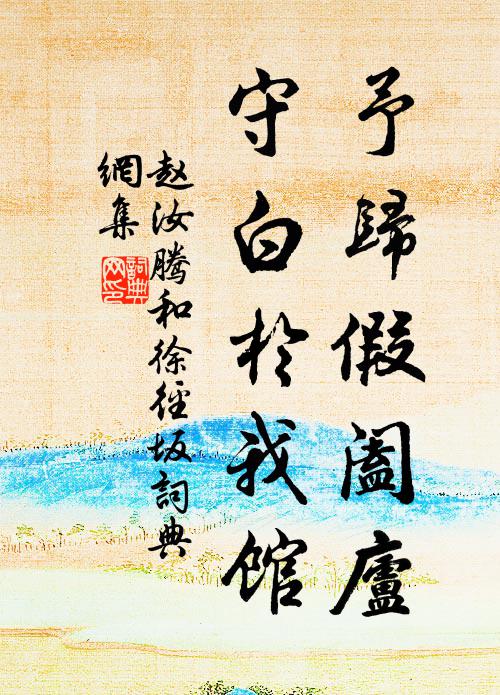 予歸假闔廬
守白於我館
赵汝腾和徐径坂詞典
網集
詞典
网印